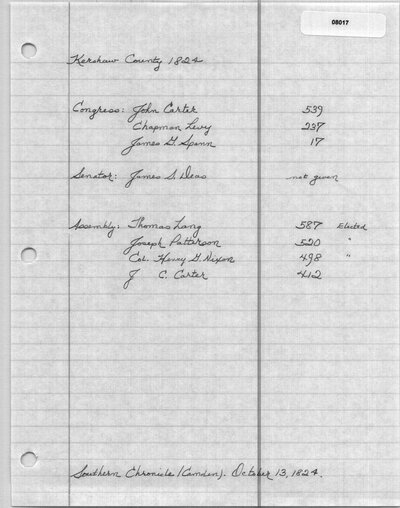 08017
Kershaw County 1824
Congress: John Carter 539
Chapman Levy 237
James G. Spann 17
Senator: James S. Deas not given
Assembly: Thomas Lang 587 Elected
Joseph Patterson 520 "
Col. Henry G. Nixon 498 "
J C. Carter 412
Southern Chronicle (Camden). October 13, 1824.